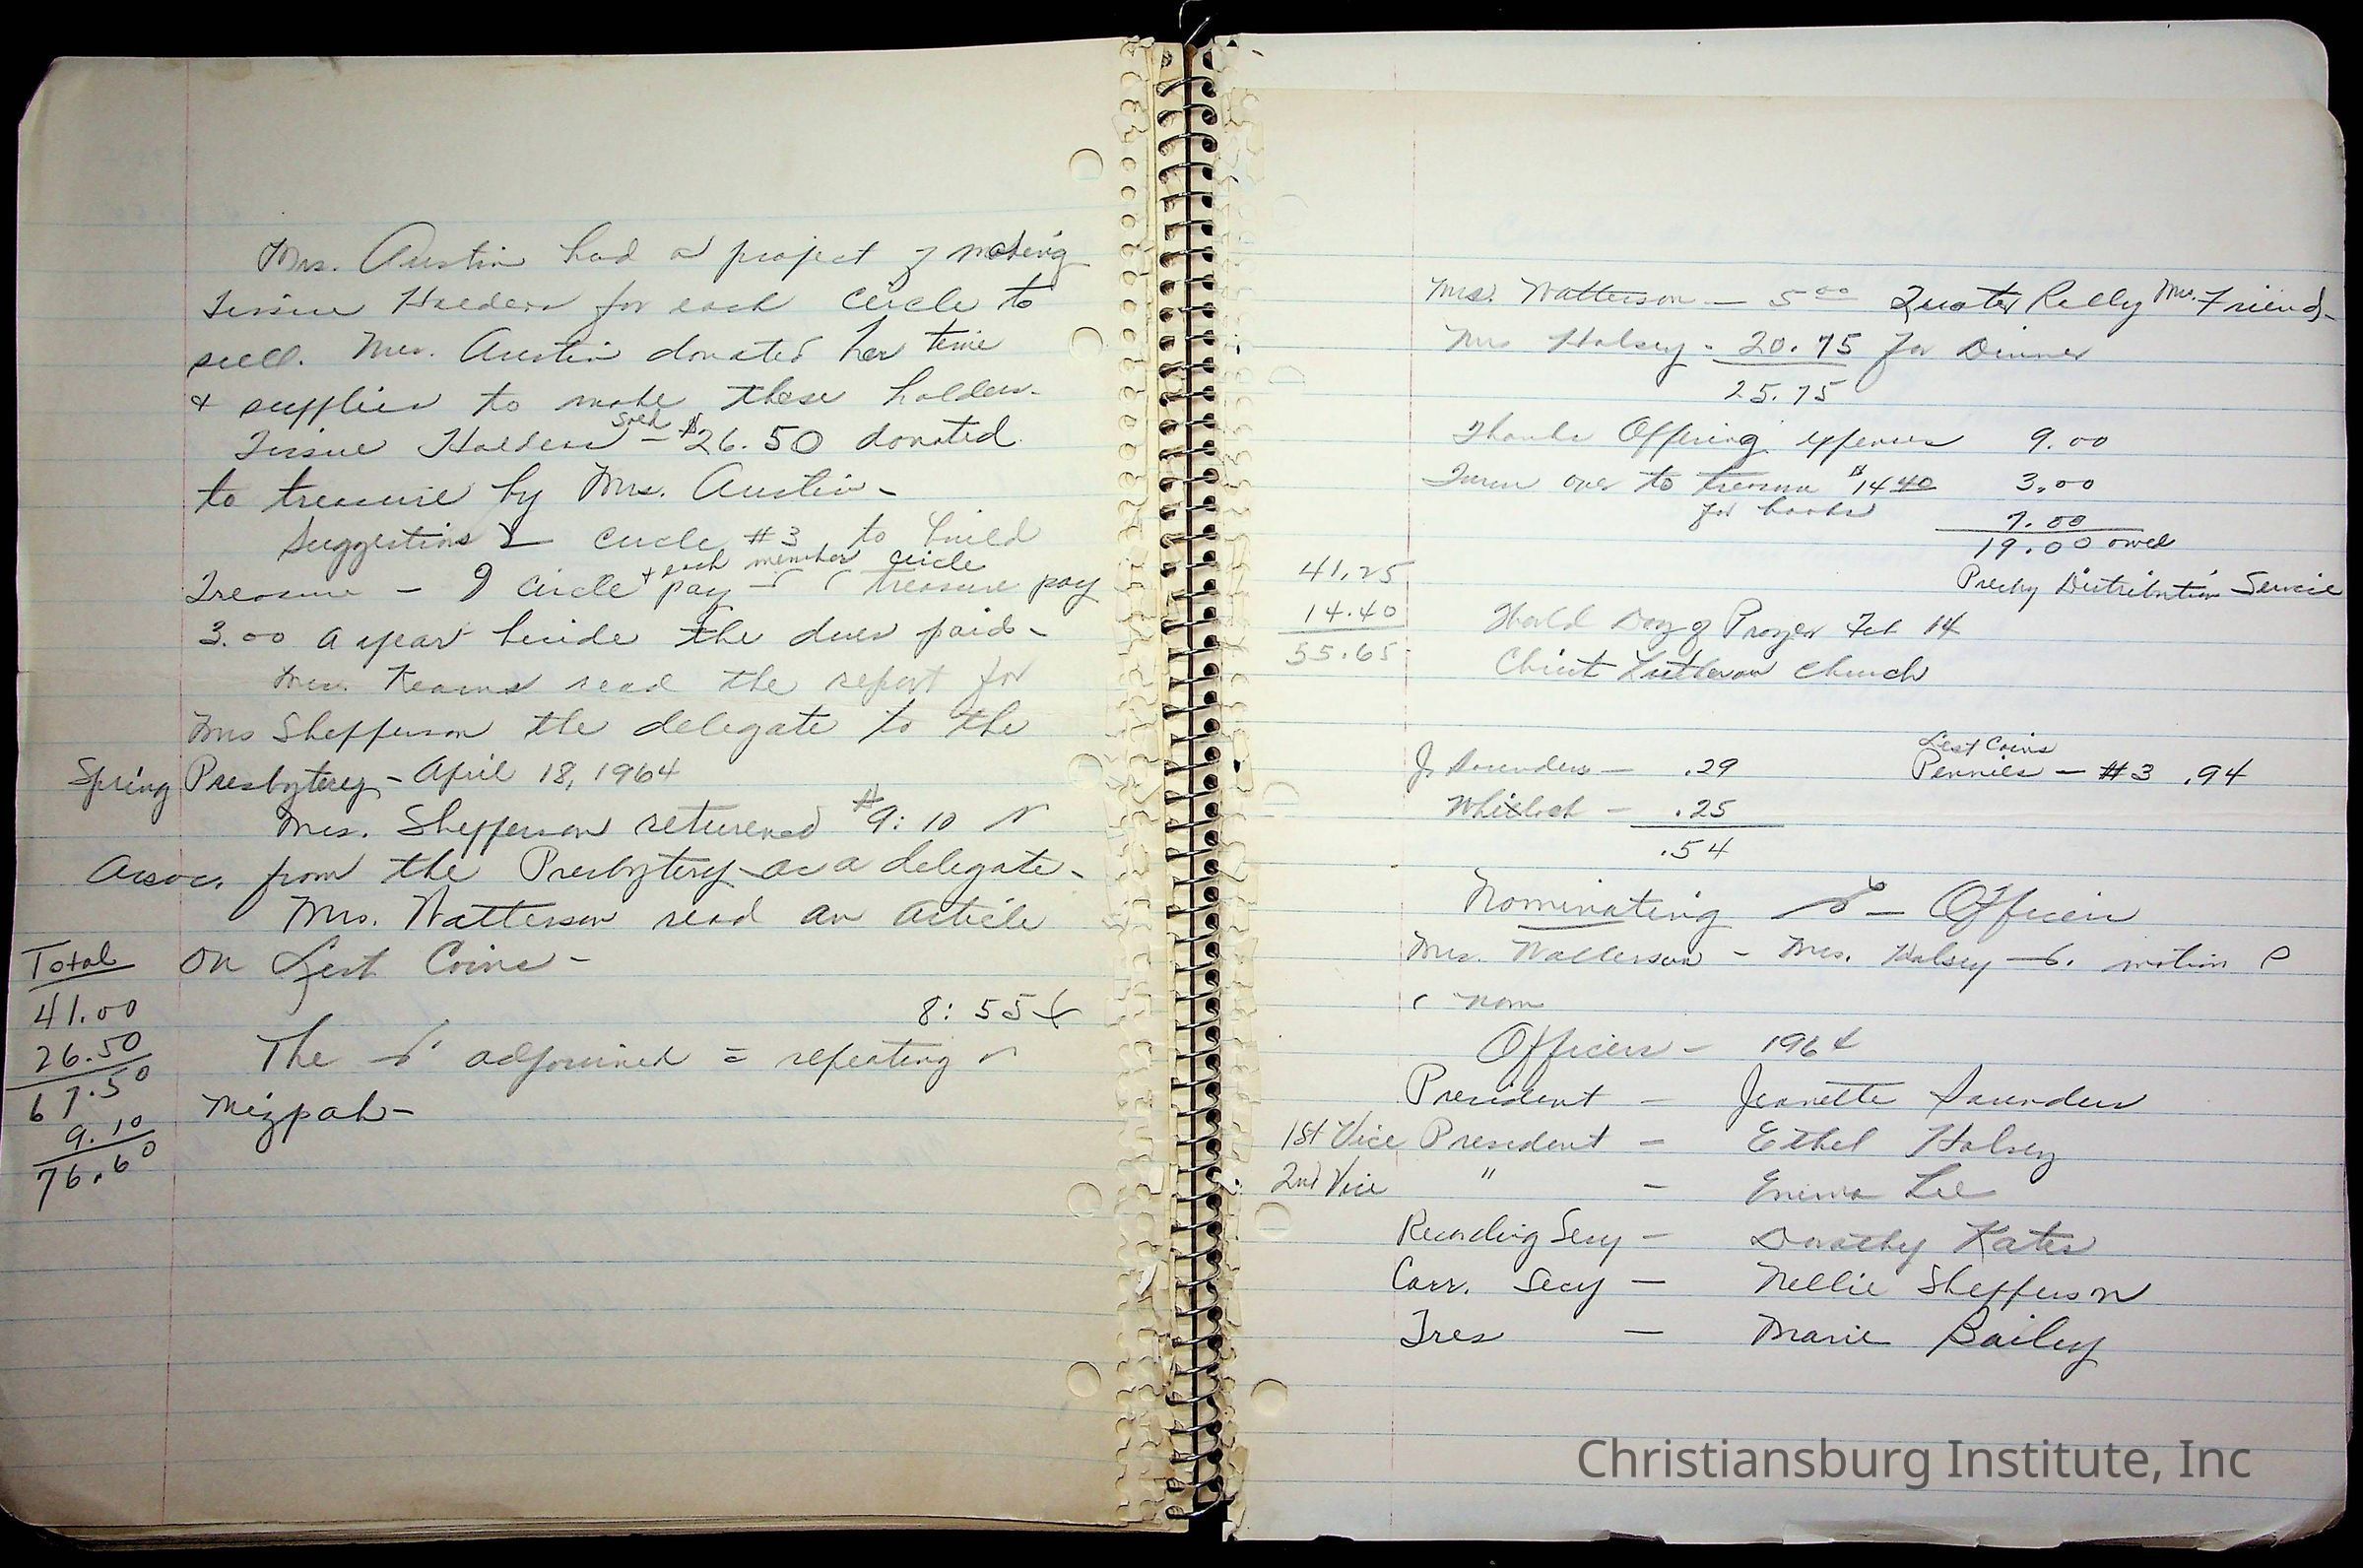 Mrs. Austin had a project of making
Tissue Holders for each circle to
sell. Mrs. Austin donated her time
& supplies to make these holders.
Sold
Tissue Holders - $26.50 donated
to treasurie by Mrs. Austin -
Suggestions Circle #3 to build
+ each member circle
Treasure - circle pay treasure pay
3.00 a year beside the dues paid -
Mrs. Kearns read the report for
Mrs Shepperson the delegate to the
Spring Presbytery - April 18, 1964
Mrs. Shepperson returened $9:10
Assoc. from the Presbytery as a delegate -
Mrs. Watterson read an article
on Lest Coins -
8:55
The adjourned = repeating
Mizpah -
Total
41.00
26.50
67.50
9.10
76.60
Mrs. Watterson - 5.00 Mrs. Friend
Mrs Halsey - 20.75 for Dinner
25.75
Thanks Offering expenses 9.00
Turn over to treasure $14.40 3.00
for books 7.00
19.00 owed
Presby Distribution Service
41.25
14.40
55.65
World Day of Prayer Feb 14
Christ Lutheran Church
Lest Coins
J. Saunders - .29 Pennies - #3 .94
Whitlock - .25
.54
Nominating - Officers
Mrs. Watterson - Mrs. Halsey motion
nom
Officers - 1964
President - Jeanette Saunders
1st Vice President - Ethel Halsey
2nd Vice " - Emma Lee
Recording Secy - Dorothy Kates
Corr. Secy - Nellie Shepperson
Tres - Marie Bailey
Christiansburg Institute, Inc